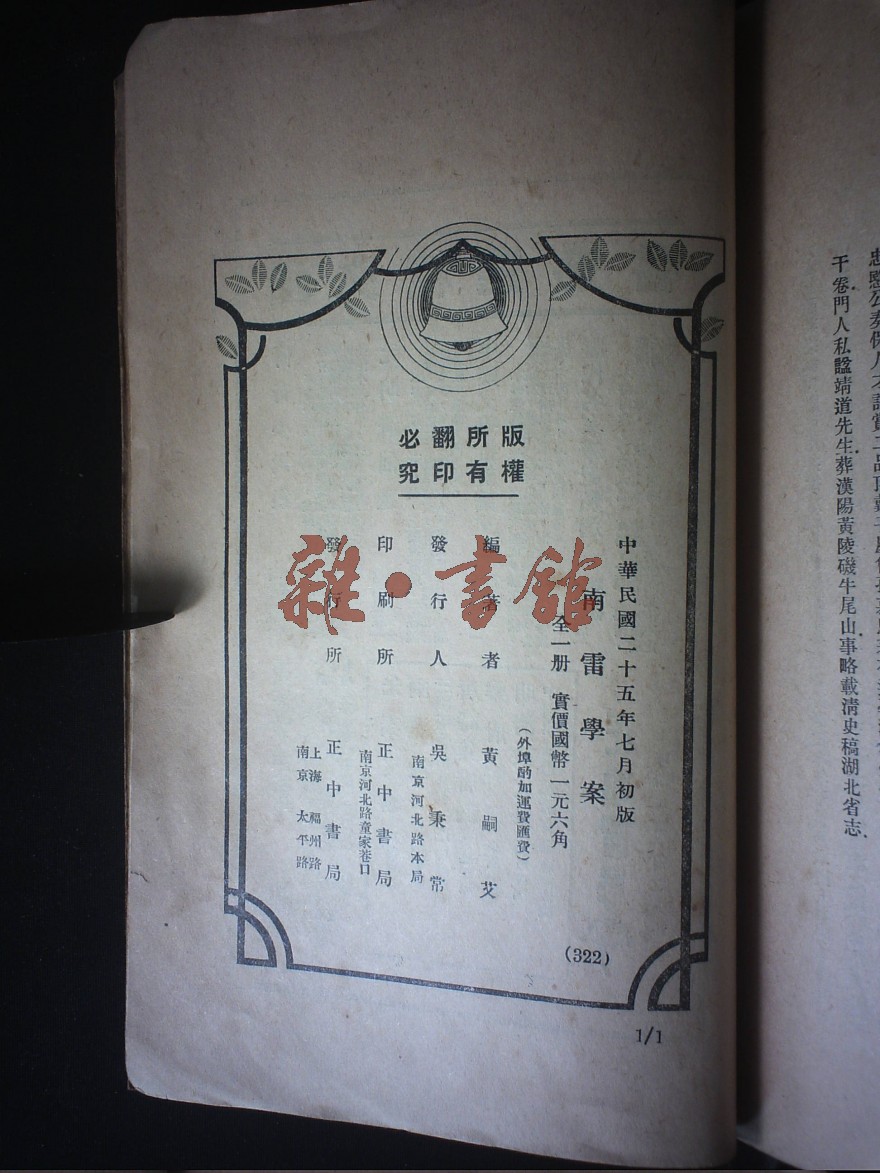 忠
干卷門人私諡靖道先生葬漢陽黃陵磯牛尾山事略載淸史稿湖北省志
版權所有
翻印必究
中華民國二十五年七月初版
南雷學案
全一册 實價國幣一元六角
(外埠酌加運費匯費)
編著者 黃嗣艾
發行人 吳秉常
南京河北路本局
印刷所 正中書局
南京河北路童家巷口
發行所 正中書局
上海福州路
南京太平路
(322)
1/1
雜·書館